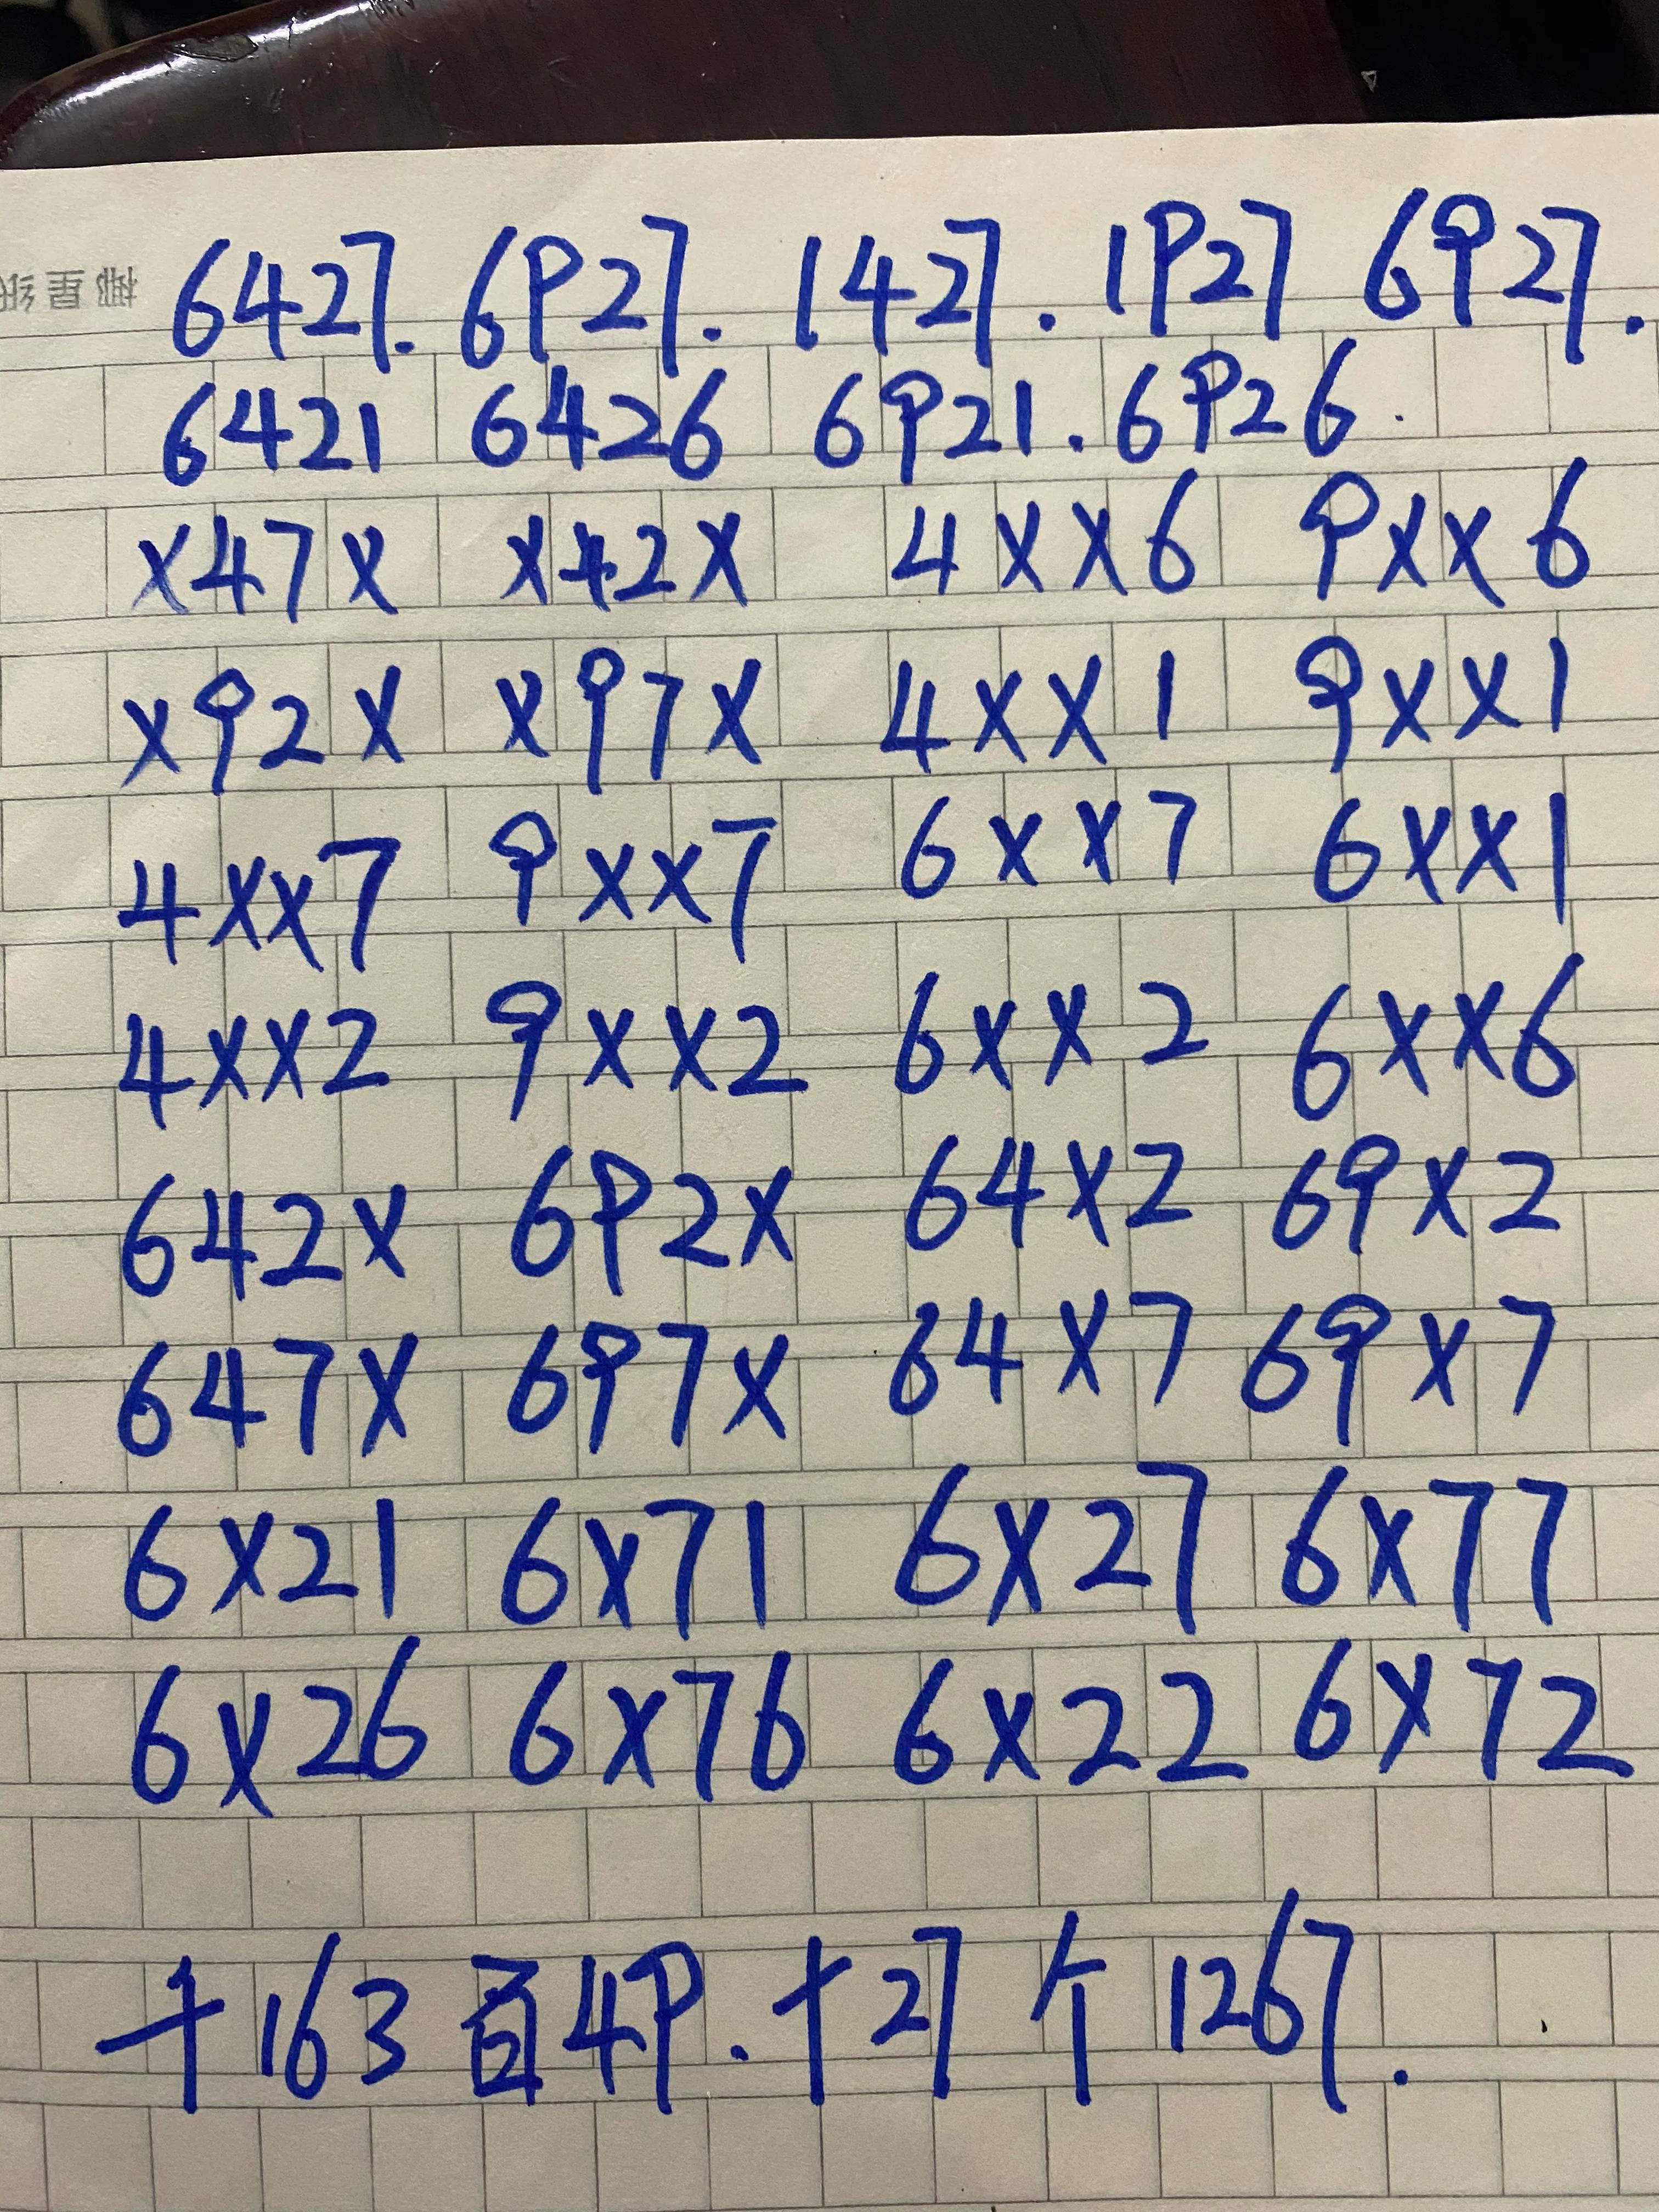 6427. 6927. 1427. 1927 6927.
6421 6426 6921. 6926.
X47X X42X 4XX6 9XX6
X92X X97X 4XX1 9XX1
4XX7 9XX7 6XX7 6XX1
4XX2 9XX2 6XX2 6XX6
642X 692X 64X2 69X2
647X 697X 64X7 69X7
6X21 6X71 6X27 6X77
6X26 6X76 6X22 6X72
千163 百49. 十27 个1267.